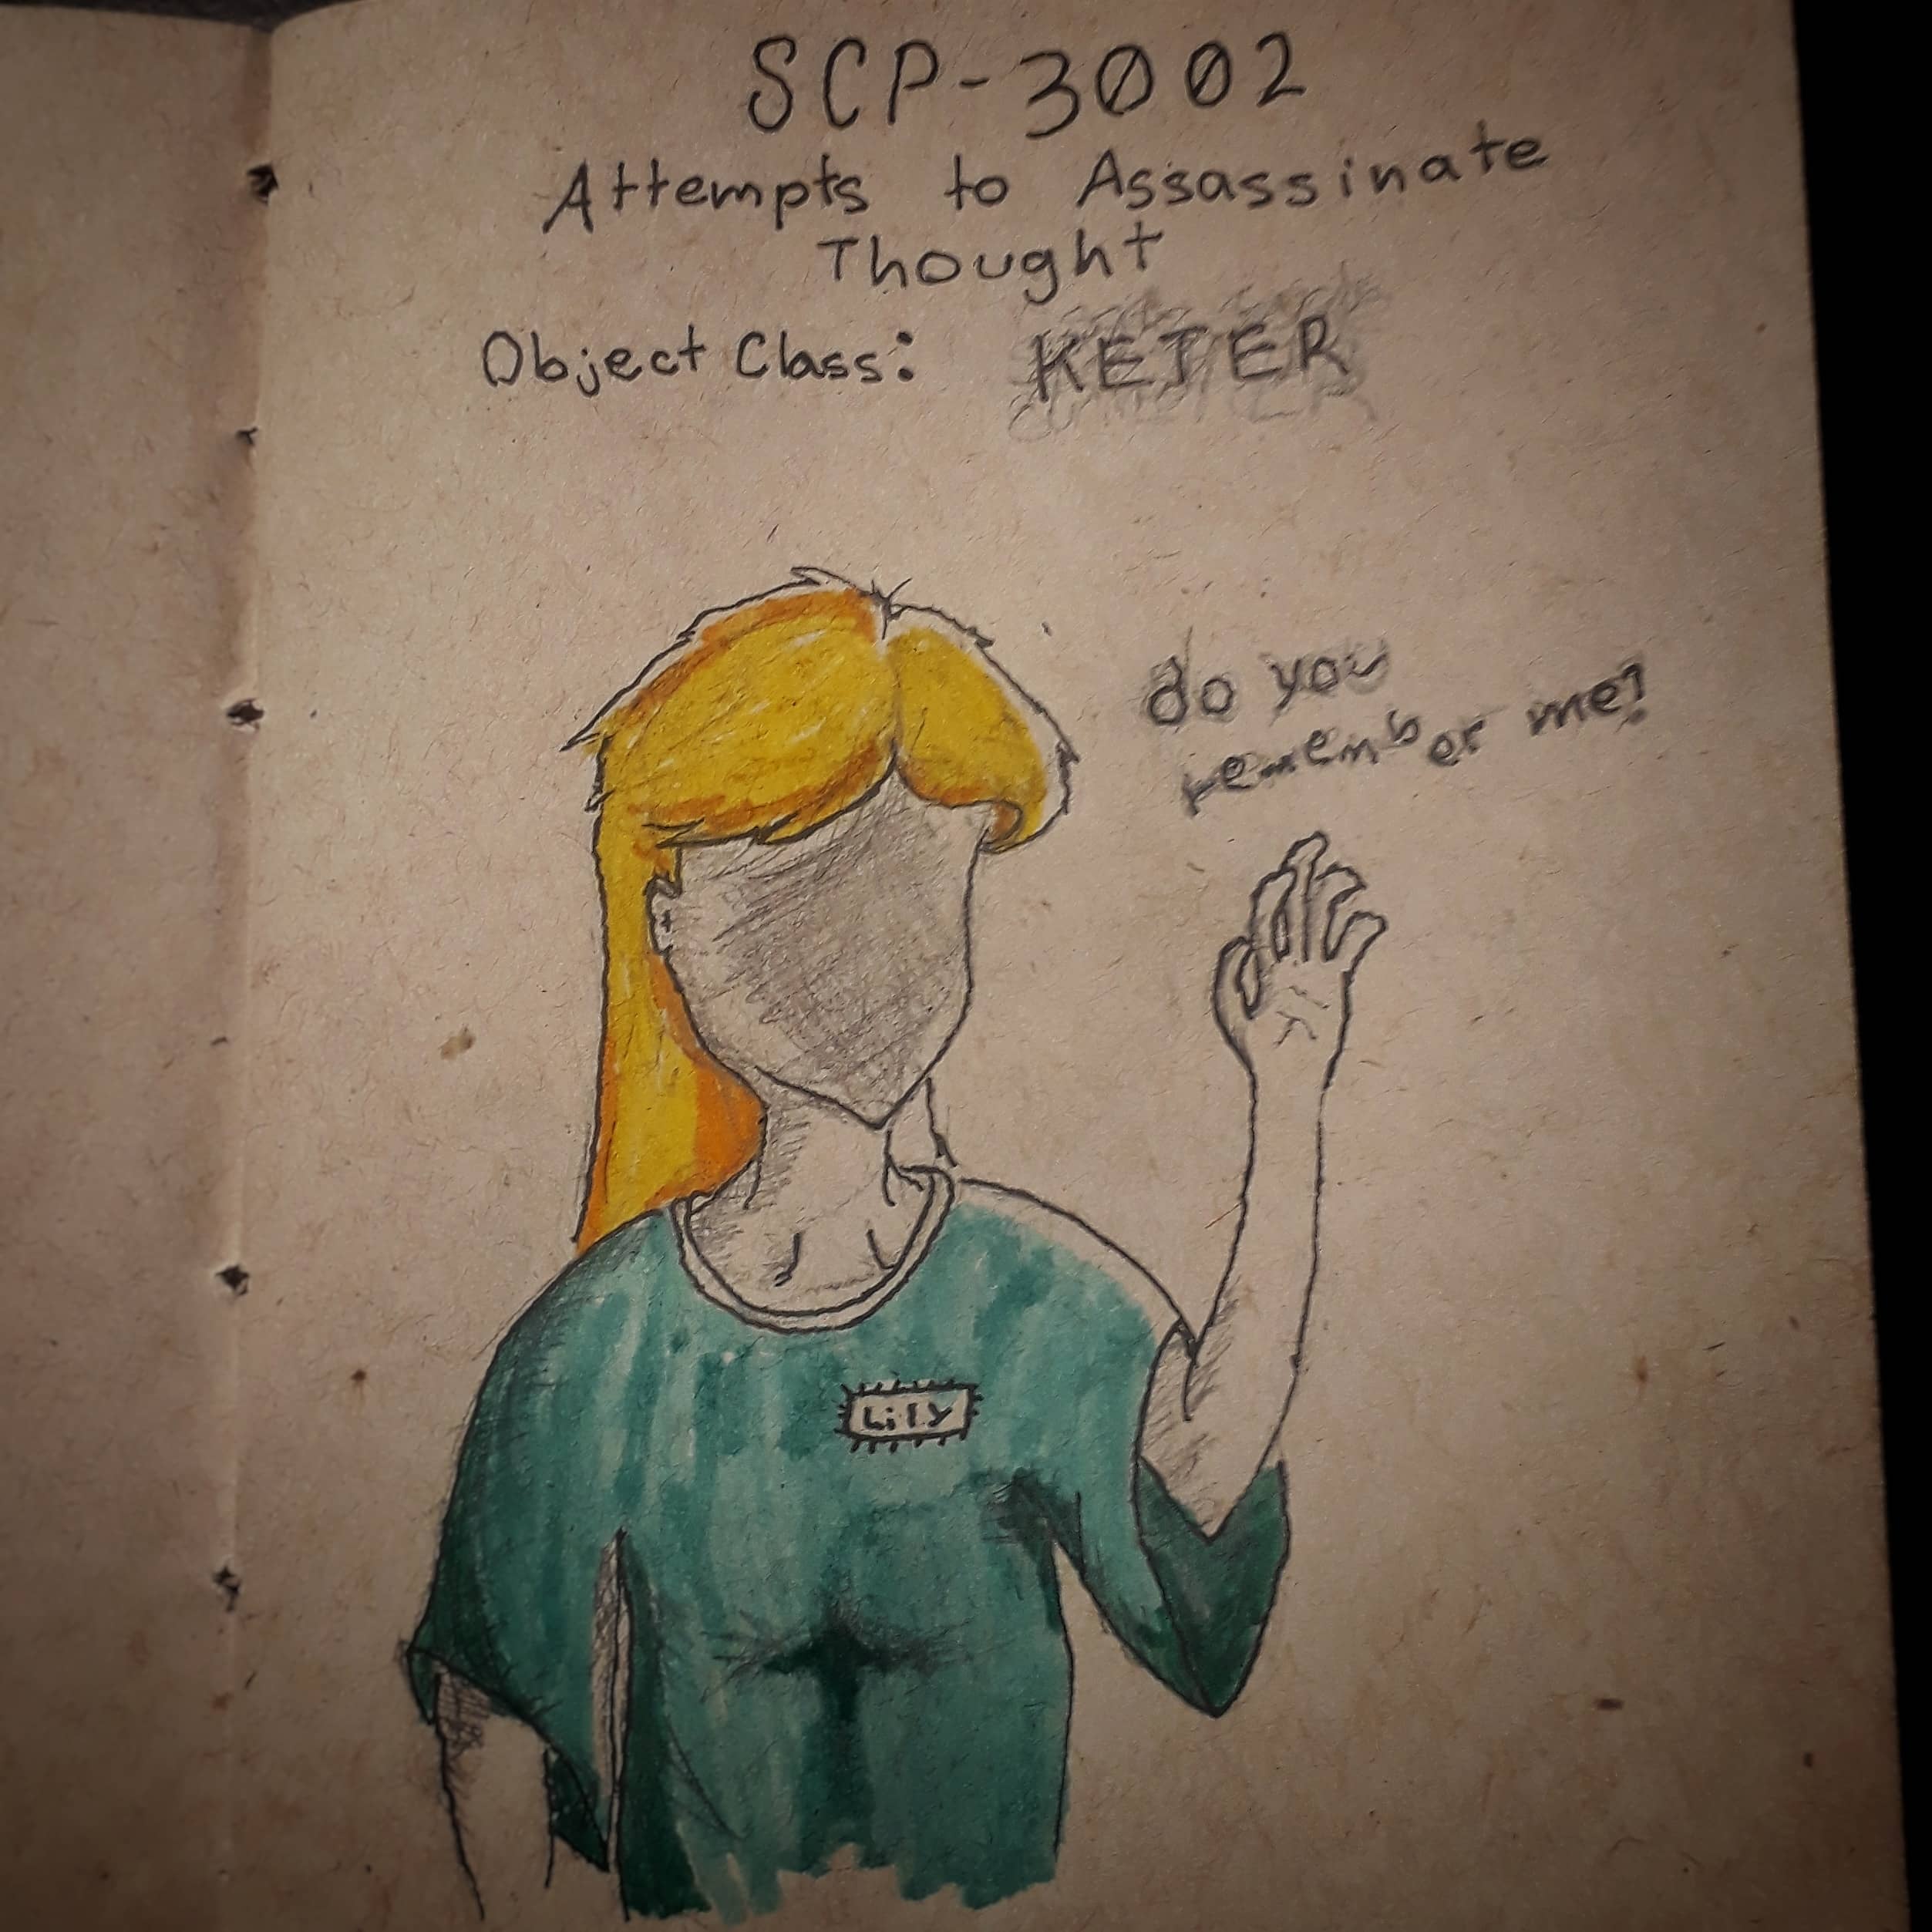 SCP-3002
Attempts to Assassinate
Thought
Object Class: KETER
do you
remember me?
Lily